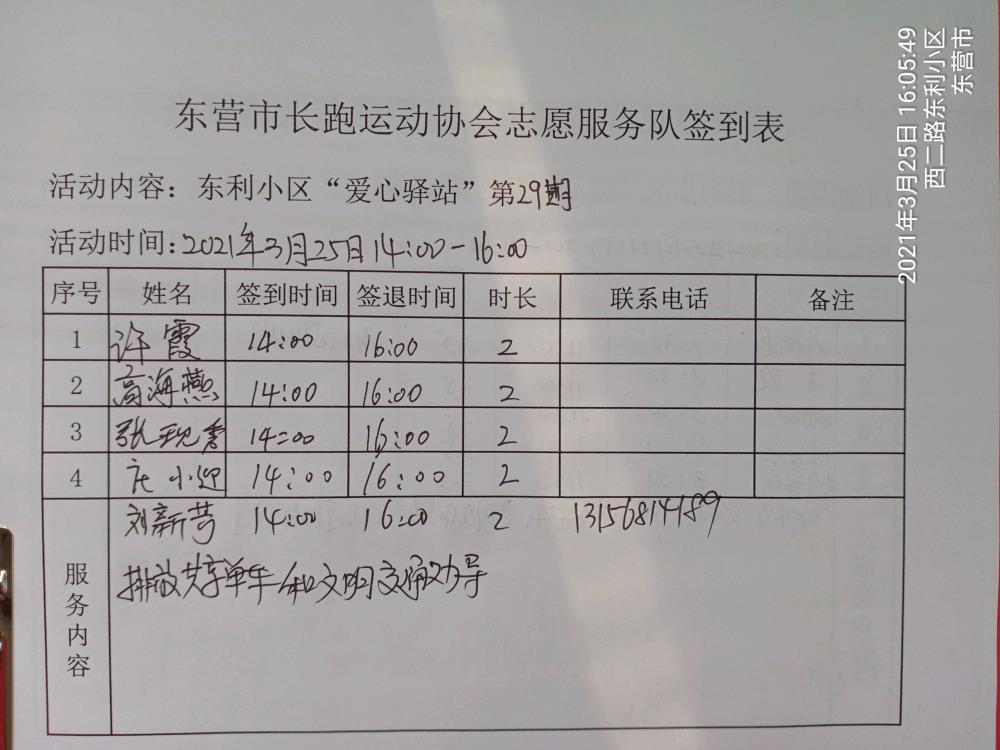 东营市长跑运动协会志愿服务队签到表
活动内容：东利小区“爱心驿站”第29期
活动时间：2021年3月25日14:00-16:00
序号 姓名 签到时间 签退时间 时长 联系电话 备注
1 许霞 14:00 16:00 2
2 高海燕 14:00 16:00 2
3 张秀 14:00 16:00 2
4 庄小迎 14:00 16:00 2
刘新芳 14:00 16:00 2 13156814189
服务内容
排放共享单车和文明交通劝导
2021年3月25日 16:05:49
西二路东利小区
东营市